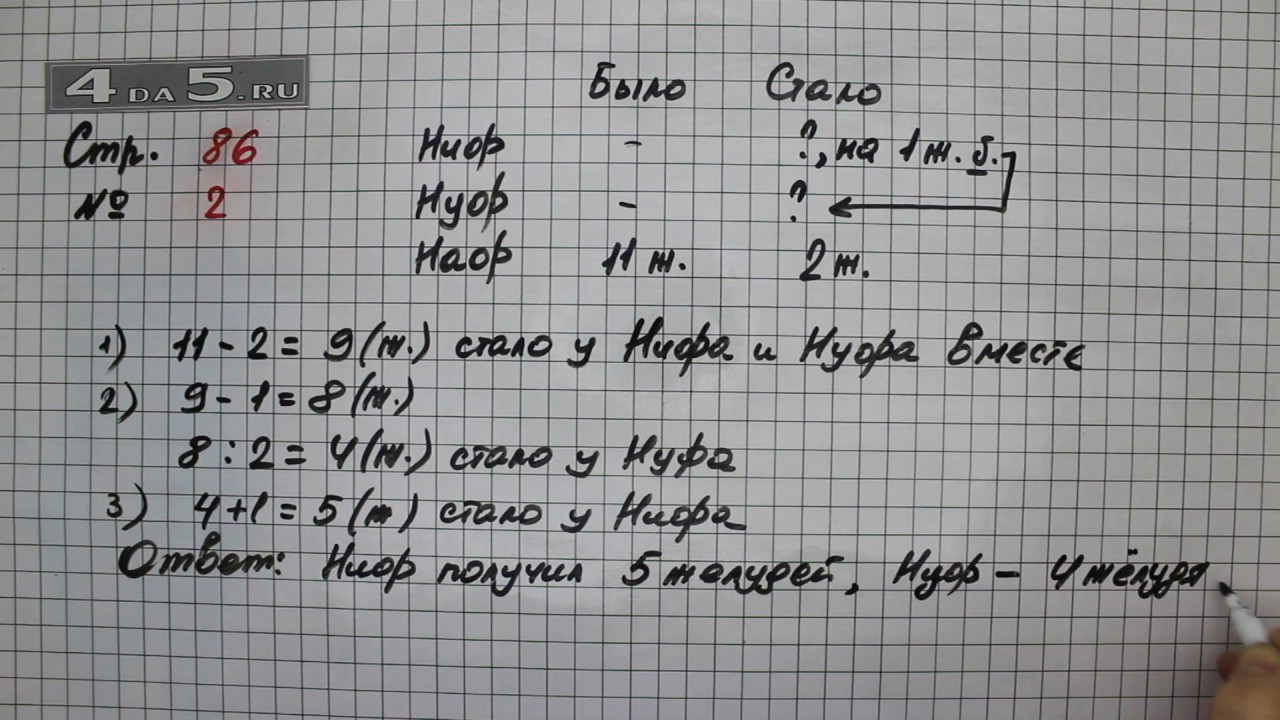 4 DA 5.RU
Было Стало
Стр. 86 Ниф - ?, на 1 ж. б.
№ 2 Нуф - ?
Наф 11 ж. 2 ж.
1) 11 - 2 = 9 (ж.) стало у Нифа и Нуфа вместе
2) 9 - 1 = 8 (ж.)
8 : 2 = 4 (ж.) стало у Нуфа
3) 4 + 1 = 5 (ж) стало у Нифа
Ответ: Ниф получил 5 желудей, Нуф - 4 жёлудя